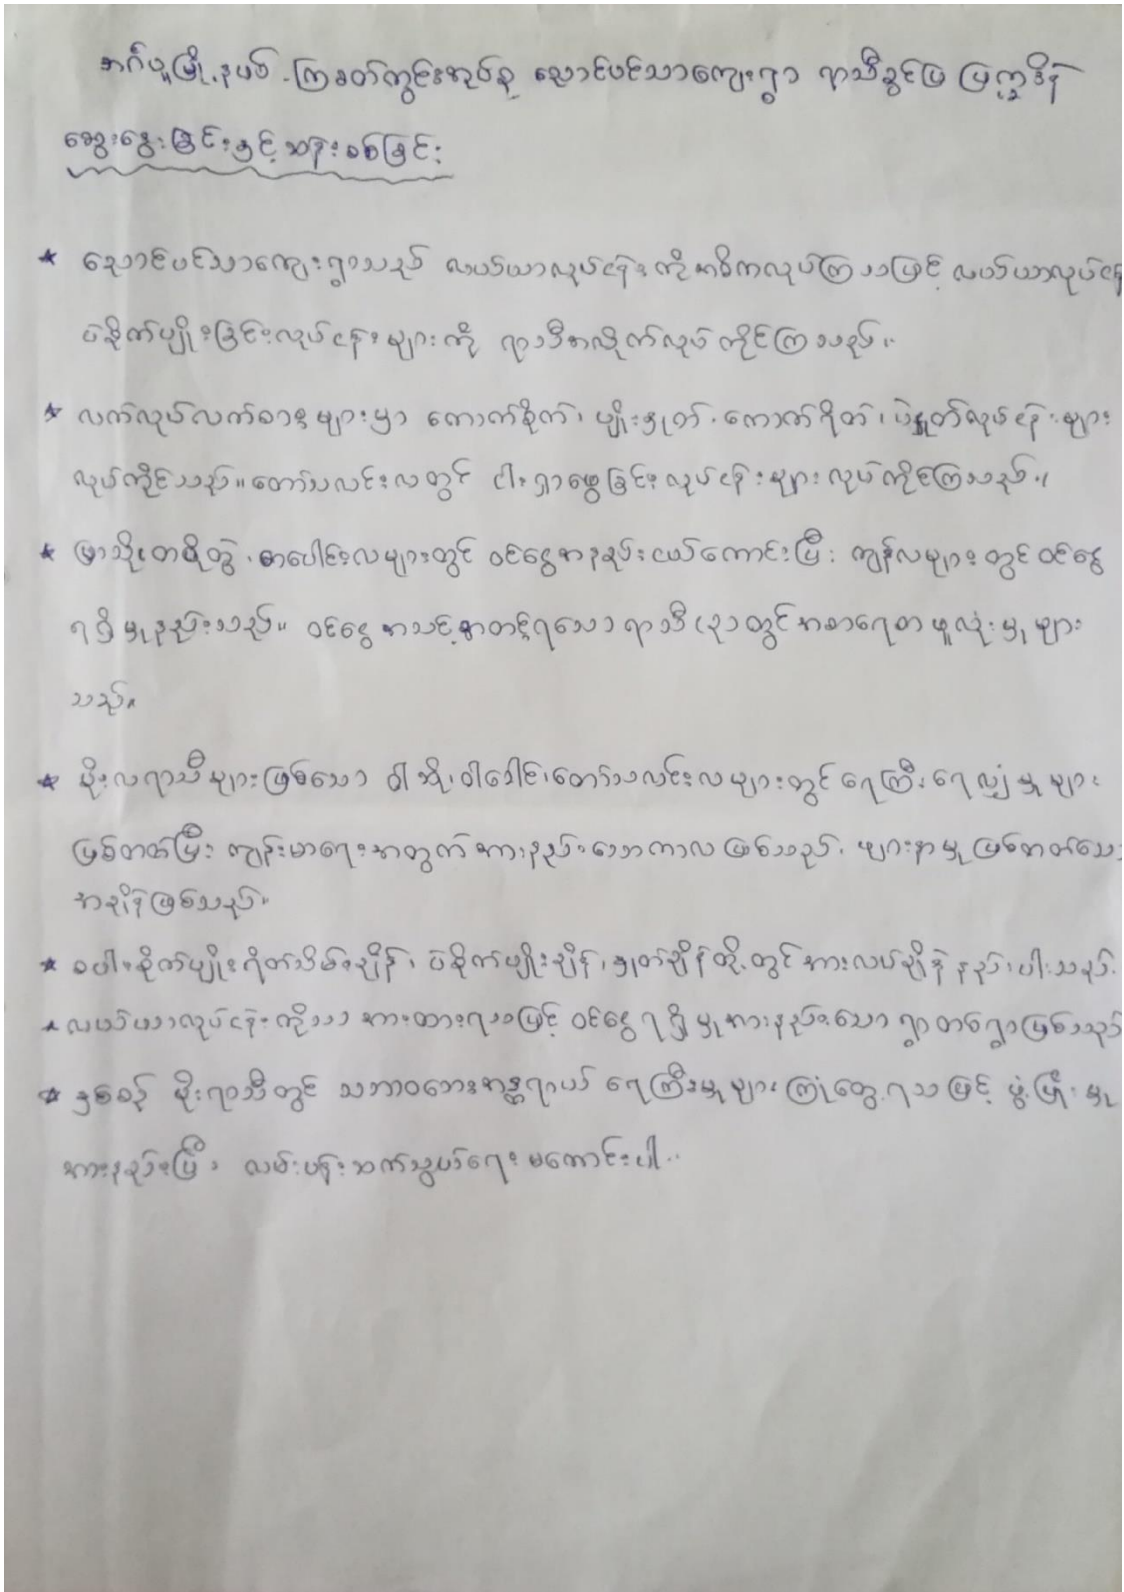 အင်္ဂပူမြို့နယ်၊ ကြခတ်ကွင်းအုပ်စု ညောင်ပင်သာကျေးရွာ ရာသီခွင်ပြ ပြက္ခဒိန်
ဆွေးနွေးခြင်းနှင့် ဆန်းစစ်ခြင်း
* ညောင်ပင်သာကျေးရွာသည် လယ်ယာလုပ်ငန်းကို အဓိကလုပ်ကြသဖြင့် လယ်ယာလုပ်ငန်း
ပဲစိုက်ပျိုးခြင်းလုပ်ငန်းများကို ရာသီအလိုက်လုပ်ကိုင်ကြသည်။
* လက်လုပ်လက်စားများမှာ ကောက်စိုက်၊ ပျိုးနှုတ်၊ ကောက်ရိတ်၊ ပဲနှုတ်လုပ်ငန်းများ
လုပ်ကိုင်သည်။ တော်သလင်းလတွင် ငါးရှာဖွေခြင်းလုပ်ငန်းများ လုပ်ကိုင်ကြသည်။
* ပြာသို၊ တပို့တွဲ၊ တပေါင်းလများတွင် ဝင်ငွေအနည်းငယ်ကောင်းပြီး ကျန်လများတွင် ဝင်ငွေ
ရရှိမှုနည်းသည်။ ဝင်ငွေအသင့်အတင့်ရသော ရာသီဥတုတွင် အစာရေစာဖူလုံမှုများ
သည်။
* မိုးလရာသီများဖြစ်သော ဝါဆို၊ ဝါခေါင်၊ တော်သလင်းလများတွင် ရေကြီးရေလျှံမှုများ
ဖြစ်တတ်ပြီး ကျန်းမာရေးအတွက် အားနည်းသောကာလဖြစ်သည်၊ ဖျားနာမှုဖြစ်တတ်သော
အချိန်ဖြစ်သည်။
* စပါးစိုက်ပျိုးရိတ်သိမ်းချိန်၊ ပဲစိုက်ပျိုးချိန်၊ နှုတ်ချိန်တို့တွင် အားလပ်ချိန် နည်းပါးသည်။
* လယ်ယာလုပ်ငန်းကိုသာ အားထားရသဖြင့် ဝင်ငွေရရှိမှုအားနည်းသော ရွာတစ်ရွာဖြစ်သည်
* နှစ်စဉ် မိုးရာသီတွင် သဘာဝဘေးအန္တရာယ် ရေကြီးမှုများ ကြုံတွေ့ရသဖြင့် ဖွံ့ဖြိုးမှု
အားနည်းပြီး လမ်းပန်းဆက်သွယ်ရေး မကောင်းပါ။